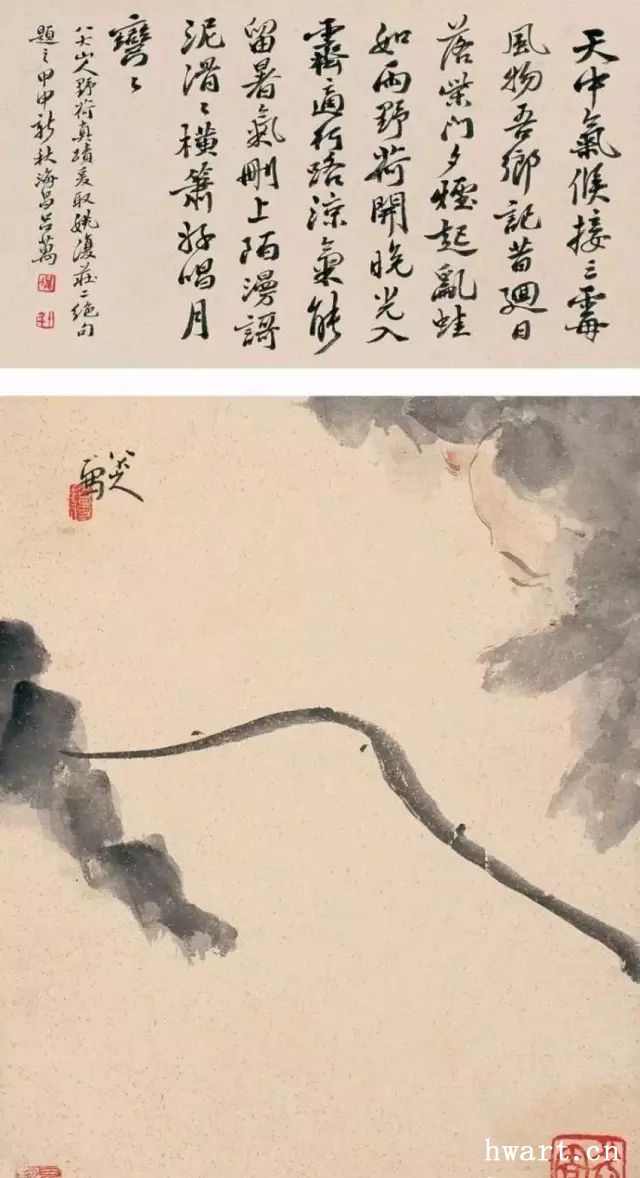 天中氣候接三霉
風物吾鄉記昔迴日
落柴門夕煙起亂蛙
如雨野荷開晚光入
霽適行路涼氣能
留暑氣刪上陌漫謌
泥滑〻橫簫好唱月
彎〻
八大山人野荷真蹟爰取姚復莊二絕句
題之甲申新秋海昌呂萬
八大
hwart.cn